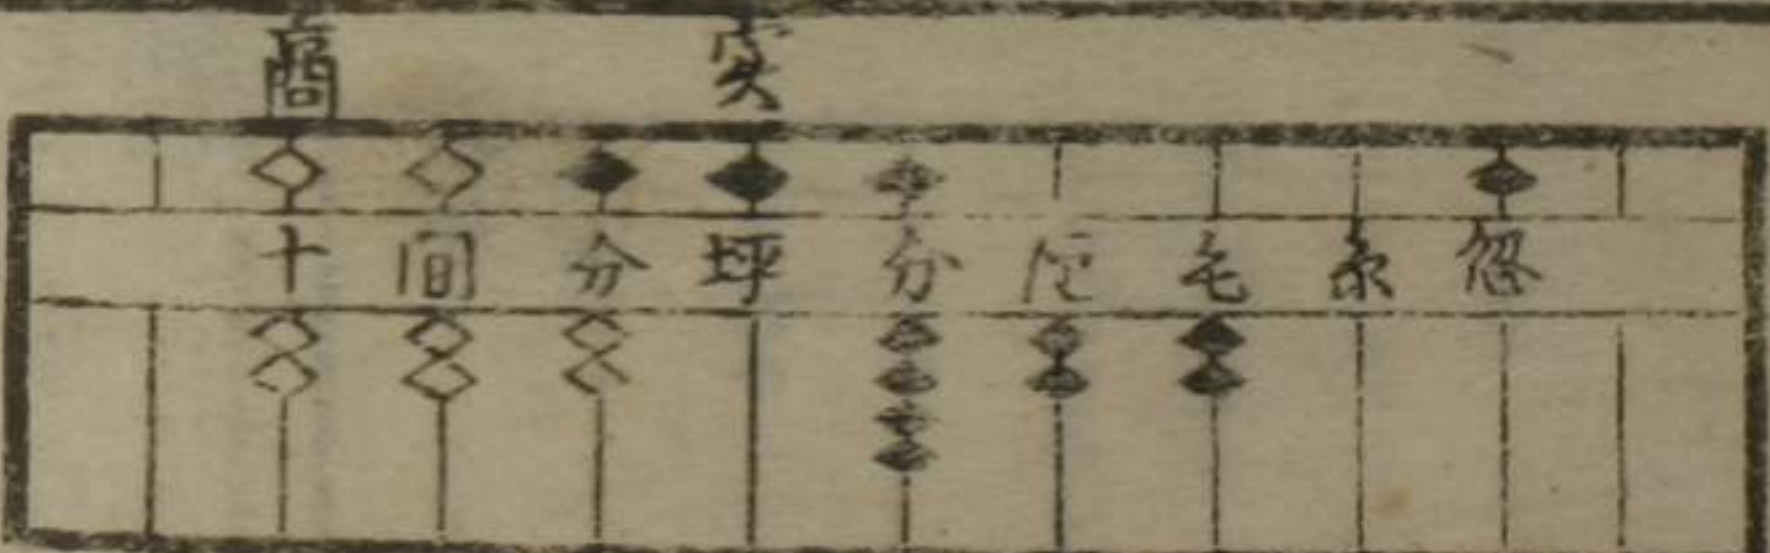 商 実
十 間 分 坪 分 厘 毛 糸 忽